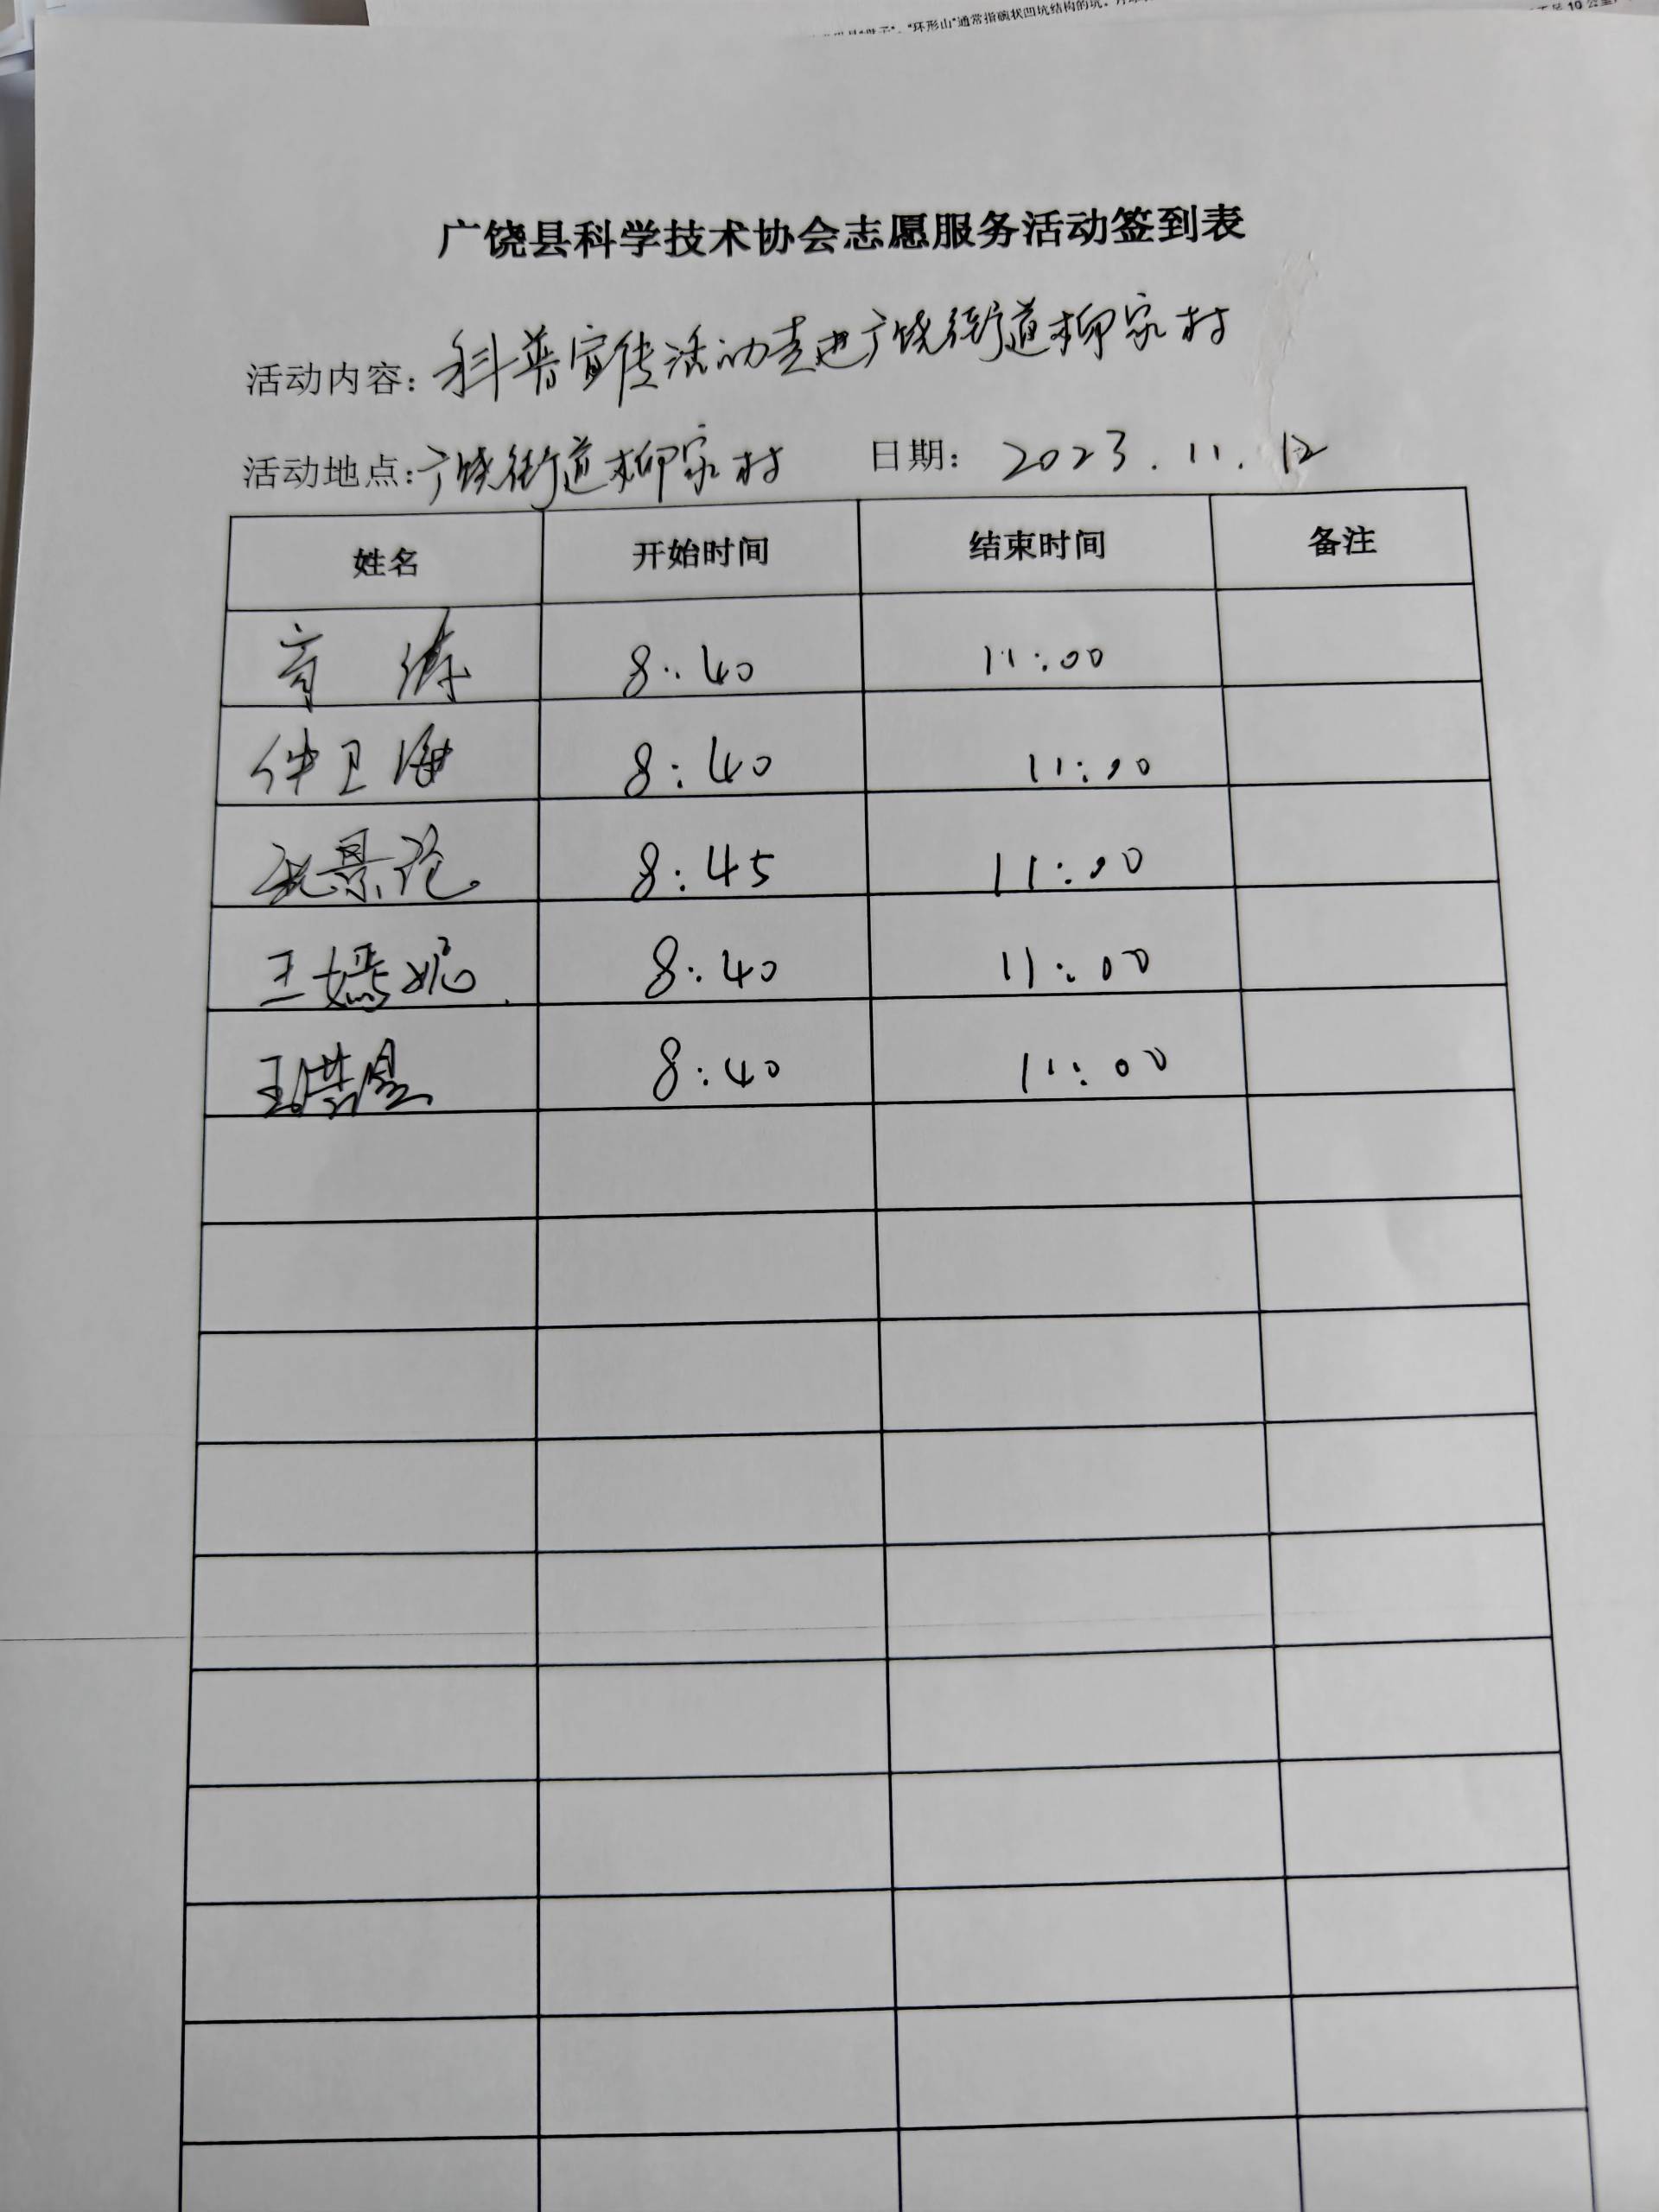 “环形山”通常指碗状凹坑结构的坑。
广饶县科学技术协会志愿服务活动签到表
活动内容：科普宣传活动走进广饶街道柳家村
活动地点：广饶街道柳家村 日期： 2023.11.12
姓名 开始时间 结束时间 备注
8:40 11:00
仲卫海 8:40 11:00
8:45 11:00
王嫣妮 8:40 11:00
8:40 11:00